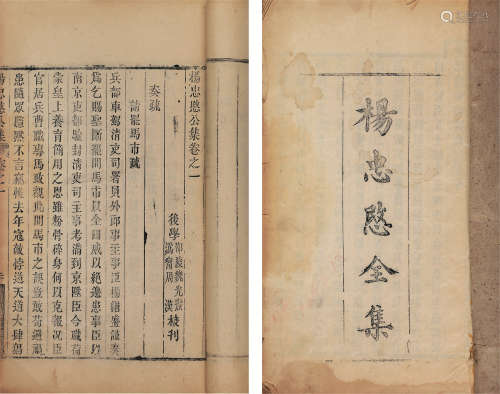 楊忠愍公集卷之一
後學
校刊
奏疏
請罷馬市疏
兵部車駕清吏司署員外郎事主事臣楊繼盛謹奏
爲乞賜聖斷罷開馬市以全國威以絕邊患事臣以
南京吏部驗封清吏司主事考滿到京陞臣今職荷
蒙皇上養育簡用之恩雖粉骨碎身何以克報況臣
官居兵曹職專馬政觀此開馬市之誤豈敢苟避禍
患隨衆隱默不言竊惟去年寇敵悖逆天道大肆
楊忠愍公集
楊忠愍全集